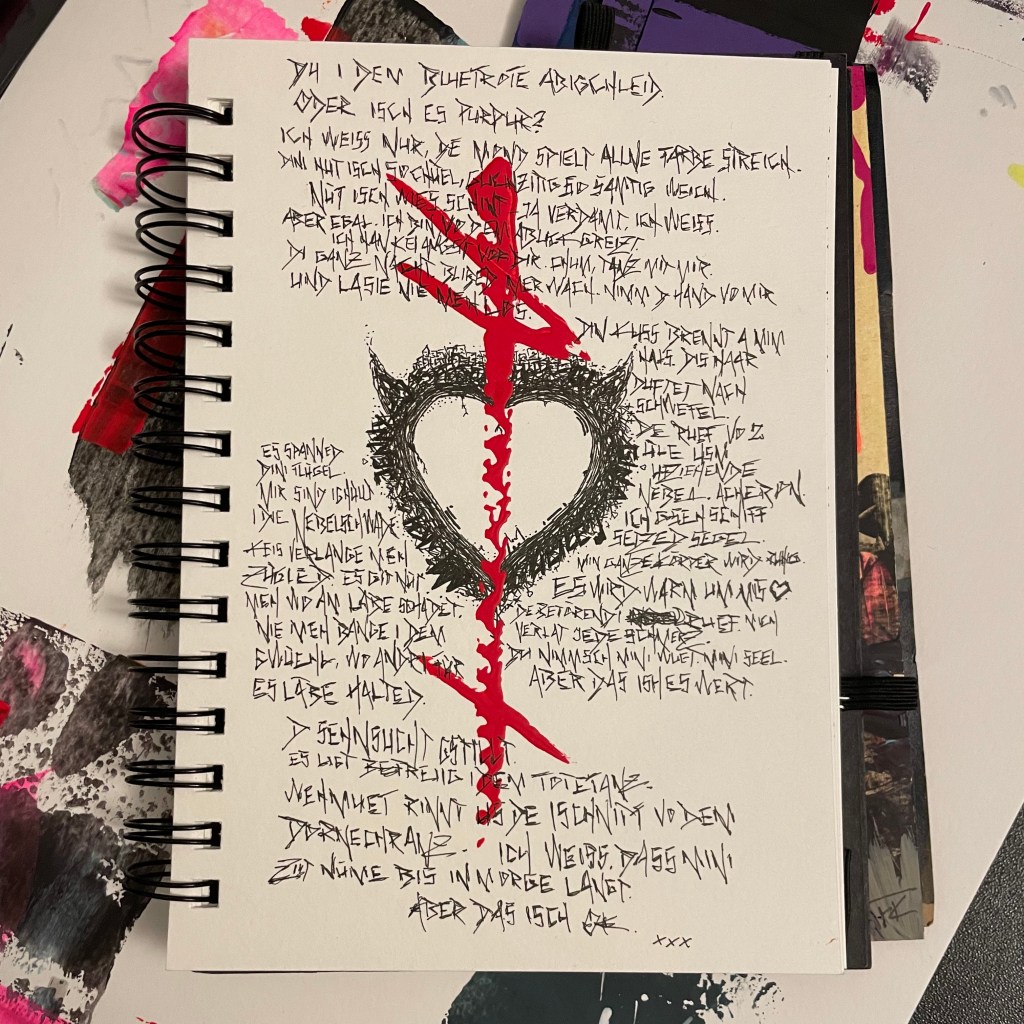 DU I DEM BLUETROTE ABIGCHLEID.
ODER ISCH ES PURPUR?
ICH WEISS NUR, DE MOND SPIELT ALLNE FARBE STREICH.
DINI HUT ISCH SO CHUEL, GLICHZITIG SO SANFTIG WEICH.
NÜT ISCH WIES SCHINT. JA VERDAMT, ICH WEISS.
ABER EGAL. ICH BIN VO DEM ABLICK GREIZT.
ICH HAN KEI ANGST VOR DIR. CHUM, TANZ MIT MIR.
DI GANZ NACHT BLIBED MER WACH. NIMM D HAND VO MIR
UND LASIE NIE MEH LOS.
DIN KUSS BRENNT A MIM
HALS. DIS HAAR
DUFTET NACH
SCHWEFEL.
DE RUEF VO
USM
UFZIEHENDE
NEBEL. ACHERON.
ICH GSEH SCHIFF
SEIZED SEGEL.
MIN GANZE KÖRPER WIRD RUHIG.
ES WIRD WARM UM ÜS ♡
DE BETÖREND RUEF. MEH
VERLAT JEDE SCHMERZ.
DU NIMMSCH MINI WUET. MINI SEEL.
ABER DAS ISH ES WERT.
ES SPANNED
DINI FLÜGEL.
MIR SIND IGHÜLLT
I DIE NEBELSCHWADE
KEIS VERLANGE MEH
ZÜGLED. ES GIT NÜT
MEH WO AM LÄBE SCHADET.
NIE MEH BANGE I DEM
GWÜEHL, WO ANDERI FÜR
ES LÄBE HALTED.
D SEHNSUCHT GSTILLT
ES LIGT BEFREIIG I DEM TOTETANZ.
WEHMUET RINNT US DE ISCHNITT VO DEM
DORNECHRANZ. ICH WEISS, DASS MINI
ZIIT NÜME BIS IN MORGE LANGT.
ABER DAS ISCH OK.
xxx